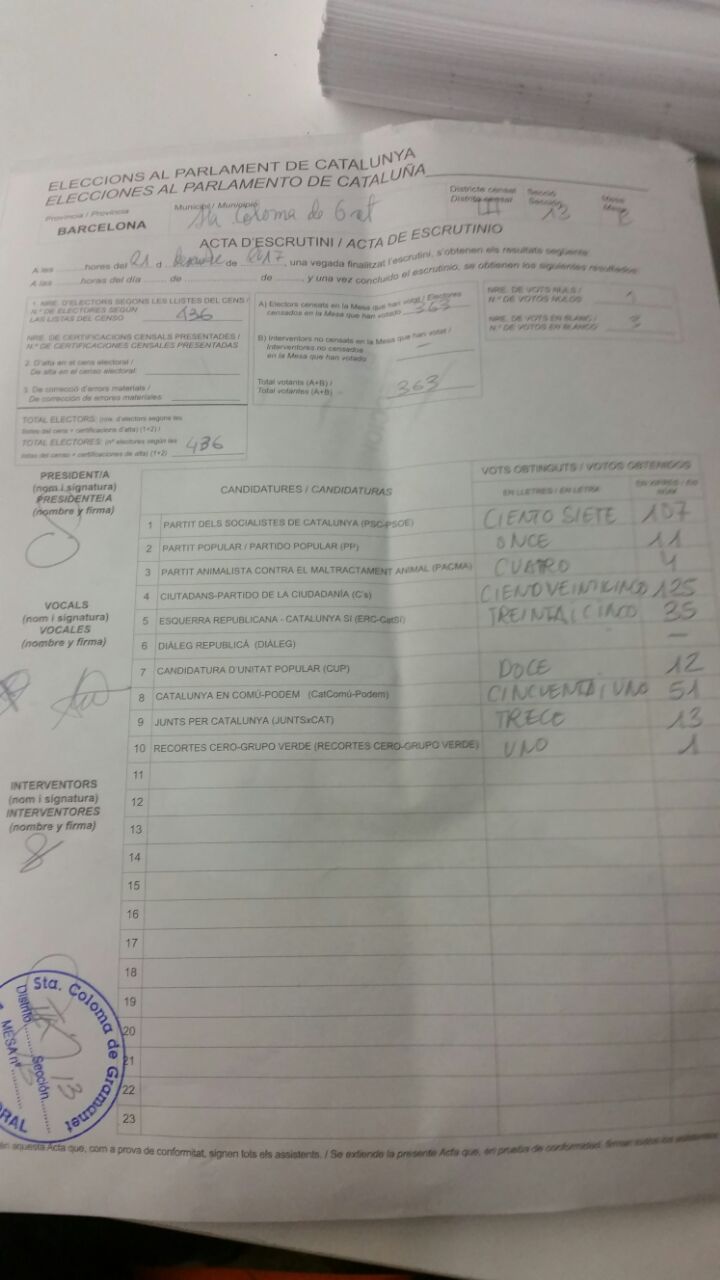 ELECCIONS AL PARLAMENT DE CATALUNYA
ELECCIONES AL PARLAMENTO DE CATALUÑA
Província / Provincia
BARCELONA
Municipi / Municipio
Sta Coloma de Gret
Districte censal
Distrito censal
III
Secció
Sección
13
Mesa
Mesa
ACTA D'ESCRUTINI / ACTA DE ESCRUTINIO
A les ..........hores del 21 d ......... de 2017, una vegada finalitzat l'escrutini, s'obtenen els resultats següents:
A las ..........horas del día ........ de .................... de ........... y una vez concluido el escrutinio, se obtienen los siguientes resultados:
1. NRE. D'ELECTORS SEGONS LES LLISTES DEL CENS /
N.º DE ELECTORES SEGÚN
LAS LISTAS DEL CENSO 436
NRE. DE CERTIFICACIONS CENSALS PRESENTADES /
N.º DE CERTIFICACIONES CENSALES PRESENTADAS
2. D'alta en el cens electoral /
De alta en el censo electoral:
3. De correcció d'errors materials /
De corrección de errores materiales
TOTAL ELECTORS: (nre. d'electors segons les
llistes del cens + certificacions d'alta) (1+2) /
TOTAL ELECTORES: (nº electores según las
listas del censo + certificaciones de alta) (1+2) 436
A) Electors censats en la Mesa que han votat / Electores
censados en la Mesa que han votado 363
B) Interventors no censats en la Mesa que han votat /
Interventores no censados
en la Mesa que han votado –
Total votants (A+B) /
Total votantes (A+B) 363
NRE. DE VOTS NULS /
N.º DE VOTOS NULOS 1
NRE. DE VOTS EN BLANC /
N.º DE VOTOS EN BLANCO 3
PRESIDENT/A
(nom i signatura)
PRESIDENTE/A
(nombre y firma)
VOCALS
(nom i signatura)
VOCALES
(nombre y firma)
INTERVENTORS
(nom i signatura)
INTERVENTORES
(nombre y firma)
CANDIDATURES / CANDIDATURAS
VOTS OBTINGUTS / VOTOS OBTENIDOS
EN LLETRES / EN LETRA
EN XIFRES / EN NÚM.
1 PARTIT DELS SOCIALISTES DE CATALUNYA (PSC-PSOE) CIENTO SIETE 107
2 PARTIT POPULAR / PARTIDO POPULAR (PP) ONCE 11
3 PARTIT ANIMALISTA CONTRA EL MALTRACTAMENT ANIMAL (PACMA) CUATRO 4
4 CIUTADANS-PARTIDO DE LA CIUDADANÍA (C's) CIENTOVEINTICINCO 125
5 ESQUERRA REPUBLICANA - CATALUNYA SÍ (ERC-CatSí) TREINTA i CINCO 35
6 DIÀLEG REPUBLICÀ (DIÀLEG) –
7 CANDIDATURA D'UNITAT POPULAR (CUP) DOCE 12
8 CATALUNYA EN COMÚ-PODEM (CatComú-Podem) CINCUENTA i UNO 51
9 JUNTS PER CATALUNYA (JUNTSxCAT) TRECE 13
10 RECORTES CERO-GRUPO VERDE (RECORTES CERO-GRUPO VERDE) UNO 1
11
12
13
14
15
16
17
18
19
20
21
22
23
Sta. Coloma de Gramanet
Distrito
Sección 13
MESA nº
ORAL
en aquesta Acta que, com a prova de conformitat, signen tots els assistents. / Se extiende la presente Acta que, en prueba de conformidad, firman todos los asistentes